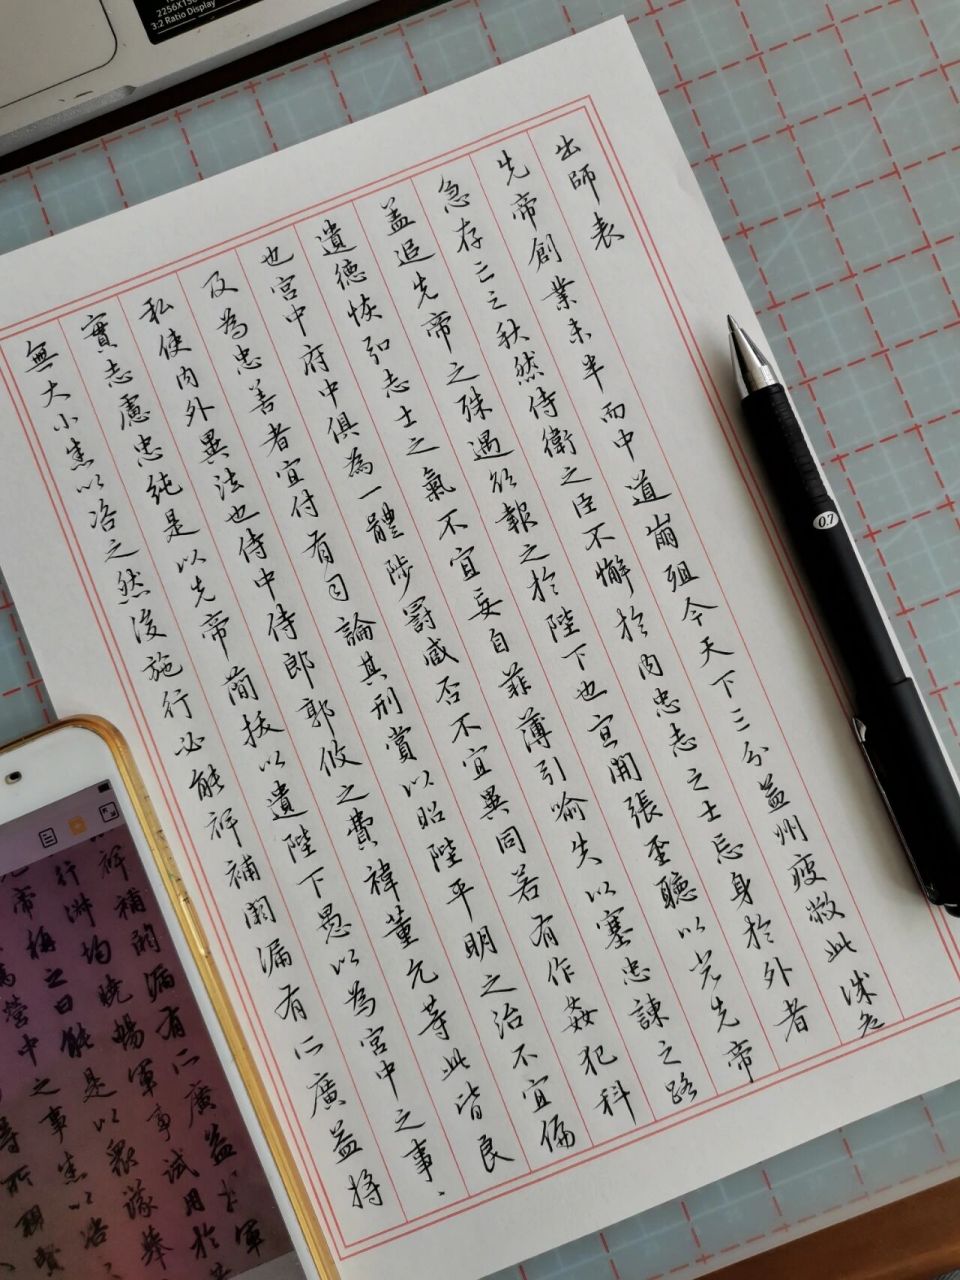 出師表
先帝創業未半而中道崩殂今天下三分益州疲敝此誠危
急存亡之秋然侍衛之臣不懈於內忠志之士忘身於外者
盖追先帝之殊遇欲報之於陛下也宜開張聖聽以光先帝
遺德恢弘志士之氣不宜妄自菲薄引喻失以塞忠諫之路
也宮中府中俱為一體陟罰臧否不宜異同若有作姦犯科
及為忠善者宜付有司論其刑賞以昭陛平明之治不宜偏
私使內外異法也侍中侍郎郭攸之費禕董允等此皆良
實志慮忠純是以先帝簡拔以遺陛下愚以為宮中之事、
無大小悉以咨之然後施行必能裨補闕漏有所廣益將
3:2 Ratio Display
0.7
裨補闕漏有所廣益將軍
行淑均曉暢軍事試用於
帝稱之曰能是以眾議舉
為營中之事悉以咨